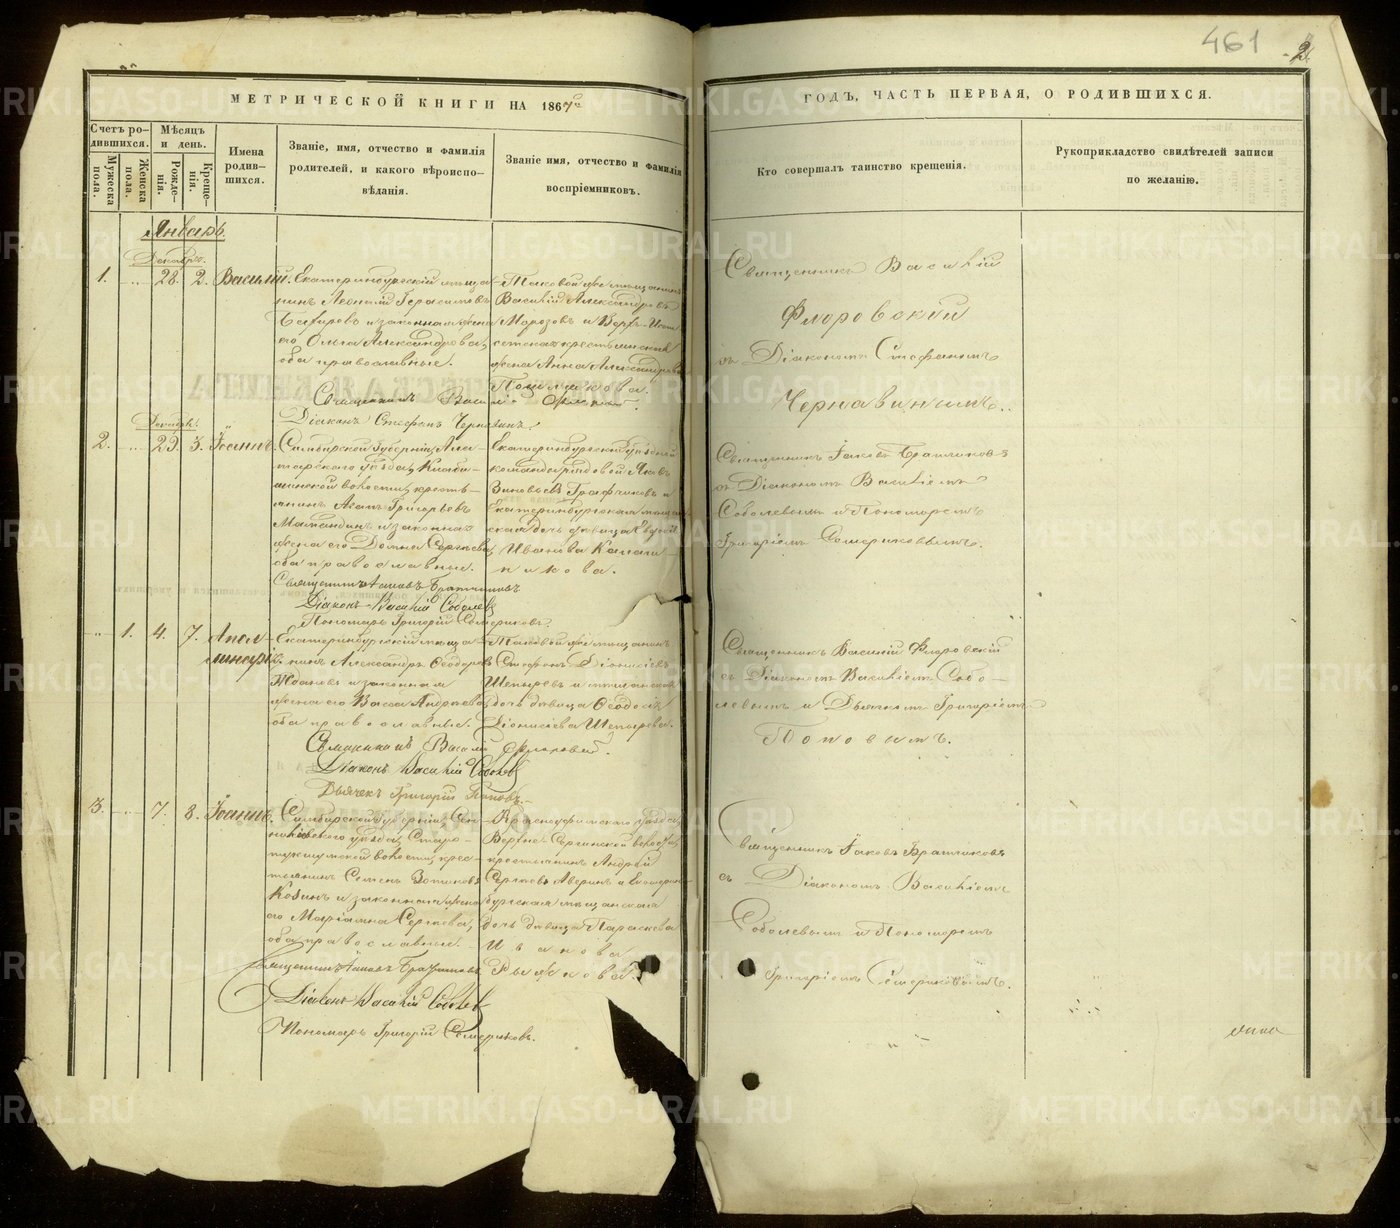 461
2
МЕТРИЧЕСКОЙ КНИГИ НА 1867
ГОДЪ, ЧАСТЬ ПЕРВАЯ, О РОДИВШИХСЯ.
Счетъ родившихся.
Мужеска пола.
Женска пола.
Мѣсяцъ и день.
Рожденія.
Крещенія.
Имена родившихся.
Званіе, имя, отчество и фамилія
родителей, и какого вѣроиспо-
вѣданія.
Званіе имя, отчество и фамилія
воспріемниковъ.
Кто совершалъ таинство крещенія.
Рукоприкладство свидѣтелей записи
по желанію.
Январь.
Декабря.
1. 28. 2. Василій.
Екатеринбургскій мѣща-
нинъ Леонтій Герасимовъ
и законная жена
его Ольга Александрова,
оба православные.
Таковой же мѣщанинъ
Василій Александровъ
Морозовъ и Верхъ-Исет-
ская крестьянская
жена Анна Александрова
Священникъ Василій
Флоровскій
съ Діакономъ Стефаномъ
Чернавинымъ.
Священникъ Василій Флоровскій
Діаконъ Стефанъ Чернавинъ.
Декабря.
2. 29. 3. Іоаннъ.
Симбирской Губерніи, Ала-
тырскаго уѣзда,
волости, кресть-
янинъ Агапъ Григорьевъ
и законная
жена его Домна Сергѣева,
оба православные.
Екатеринбургской уѣздной
команды рядовой Яковъ
Зиновьевъ и
Екатеринбургская мѣщан-
ская дочь дѣвица
Иванова Калаш-
никова.
Священникъ Іаковъ Братчиковъ
съ Діакономъ Василіемъ
Соболевымъ и Пономаремъ
Григоріемъ Семериковымъ.
Священникъ Іаковъ Братчиковъ
Діаконъ Василій Соболевъ
Пономарь Григорій Семериковъ.
1. 4. 7. Апол-
линарія.
Екатеринбургскій мѣща-
нинъ Александръ Ѳеодоровъ
Ждановъ и законная
жена его Васса Андреева,
оба православные.
Таковой же мѣщанинъ
Стефанъ Діонисіевъ
и мѣщанская
дочь дѣвица Ѳеодосія
Діонисіева
Священникъ Василій Флоровскій
съ Діакономъ Василіемъ Собо-
левымъ и Дьячкомъ Григоріемъ
Поповымъ.
Священникъ Василій Флоровскій
Діаконъ Василій Соболевъ
Дьячекъ Григорій Поповъ.
3. 7. 8. Іоаннъ.
Симбирской Губерніи, Сен-
гилѣевскаго уѣзда, Старо-
волости, крес-
тьянинъ Семенъ Зотиковъ
Козинъ и законная жена
его Маріамна Сергѣева,
оба православные.
Красноуфимскаго уѣзда,
Верхне-Сергинской волости,
крестьянинъ Андрей
Сергѣевъ Аверинъ и Екатерин-
бургская мѣщанская
дочь дѣвица Параскева
Иванова
Рыжкова.
Священникъ Іаковъ Братчиковъ
съ Діакономъ Василіемъ
Соболевымъ и Пономаремъ
Григоріемъ Семериковымъ.
Священникъ Іаковъ Братчиковъ
Діаконъ Василій Соболевъ
Пономарь Григорій Семериковъ.
METRIKI.GASO-URAL.RU